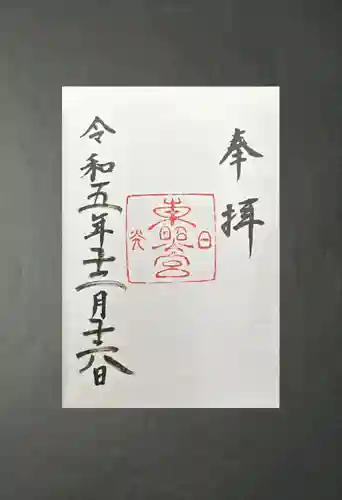 奉拝
日
東照宮
光
令和五年十二月十八日